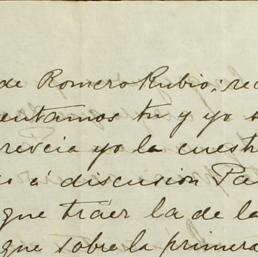 de Romero Rubio; re
entamos tu y yo s
rencia yo la cuest
s á discusion Pa
que träer la de la
que sobre la primera